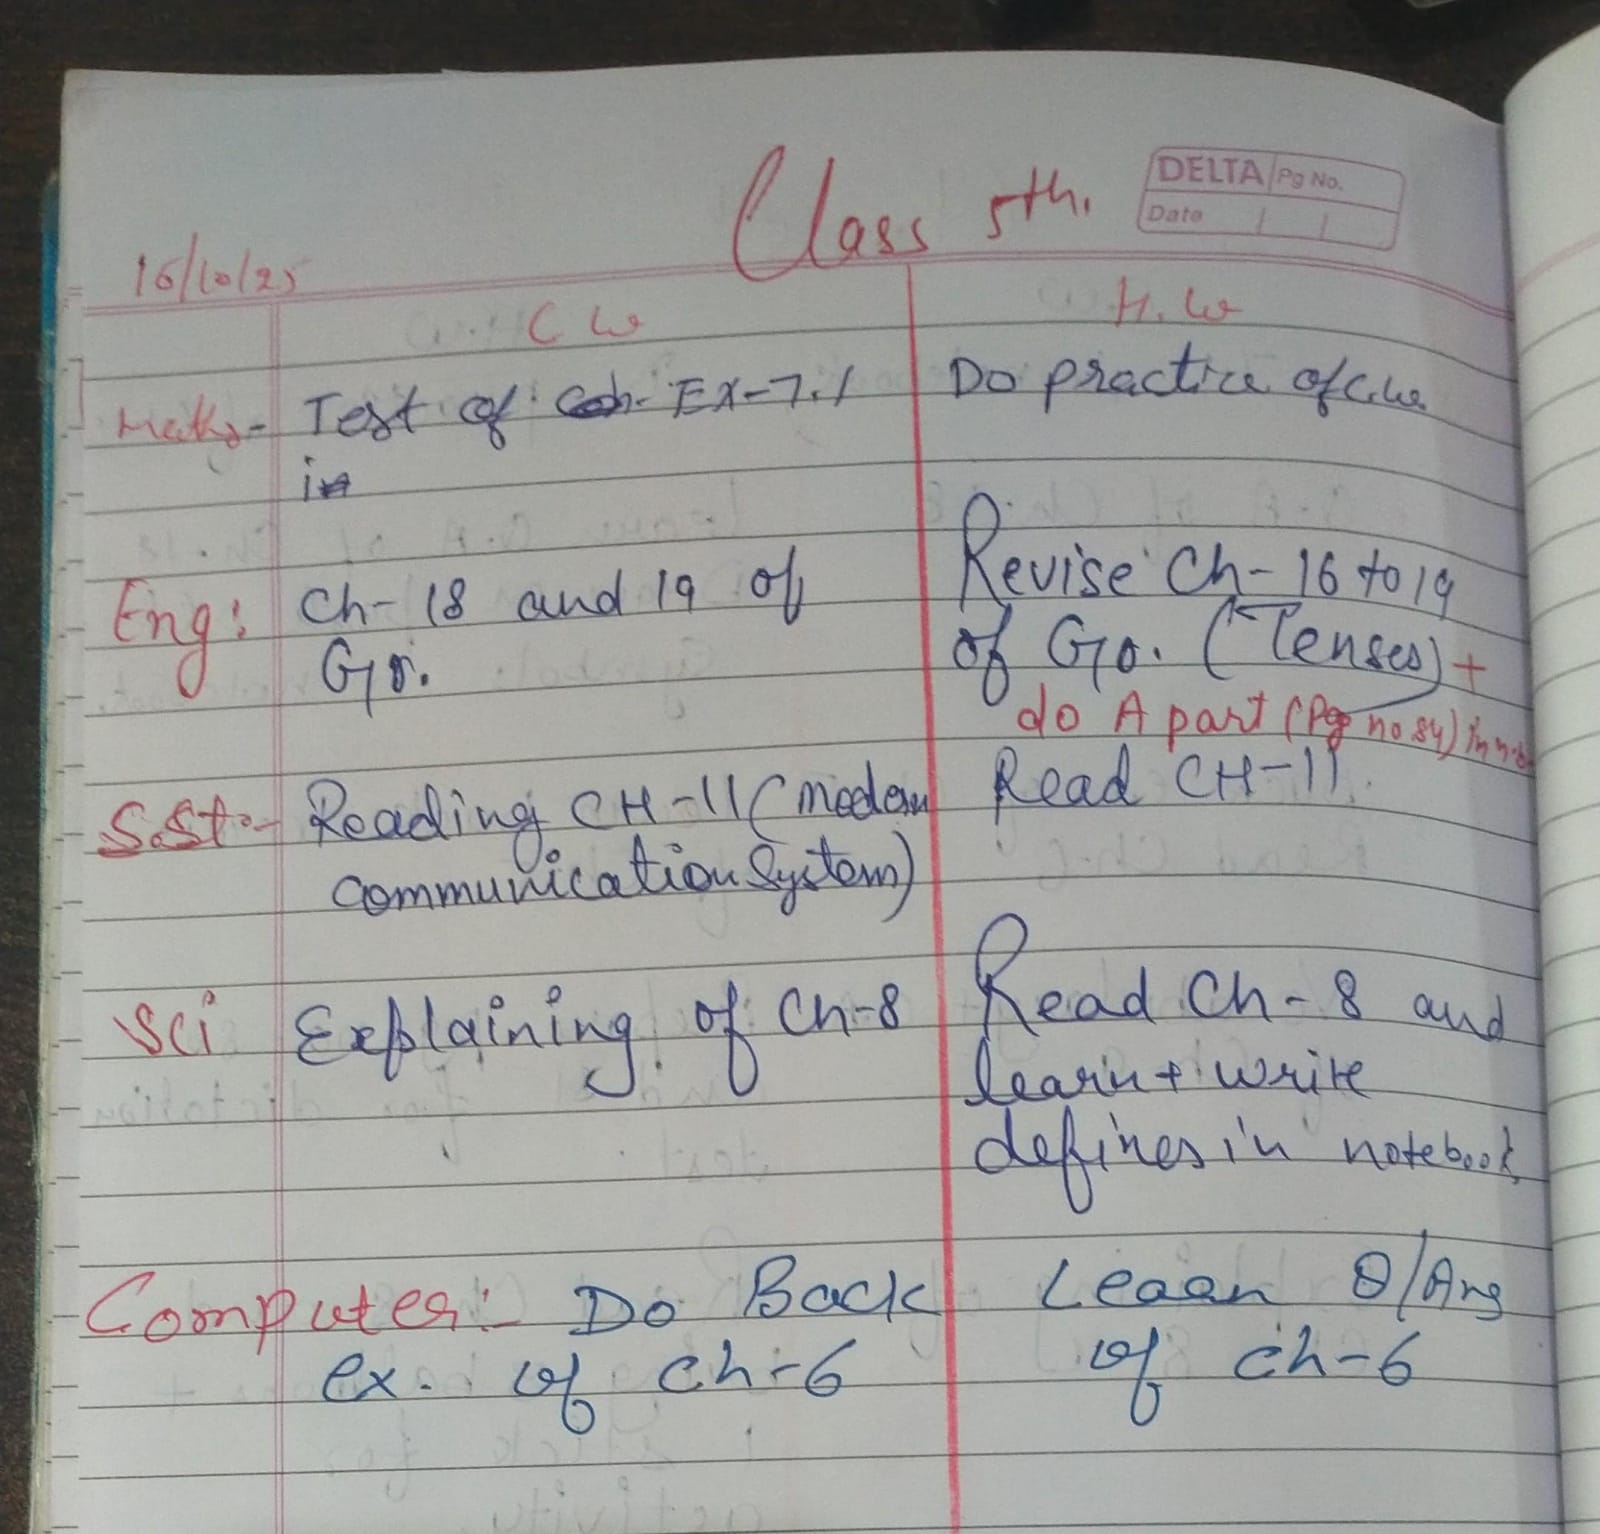 Class 5th.
DELTA Pg No.
Date
16/10/25
C W
H. W
Maths- Test of Ex-7.1
Do practice of C.w
Eng: Ch- 18 and 19 of
Gr.
Revise Ch- 16 to 19
of Gr. (Tenses) +
do A part (Pg no 84) in n.b
S.St:- Reading CH-11 (Modern
Communication System)
Read CH-11.
Sci Explaining of Ch-8
Read Ch-8 and
learn + write
defines in notebook
Computer:- Do Back
ex. of ch-6
Learn Q/Ans
of ch-6